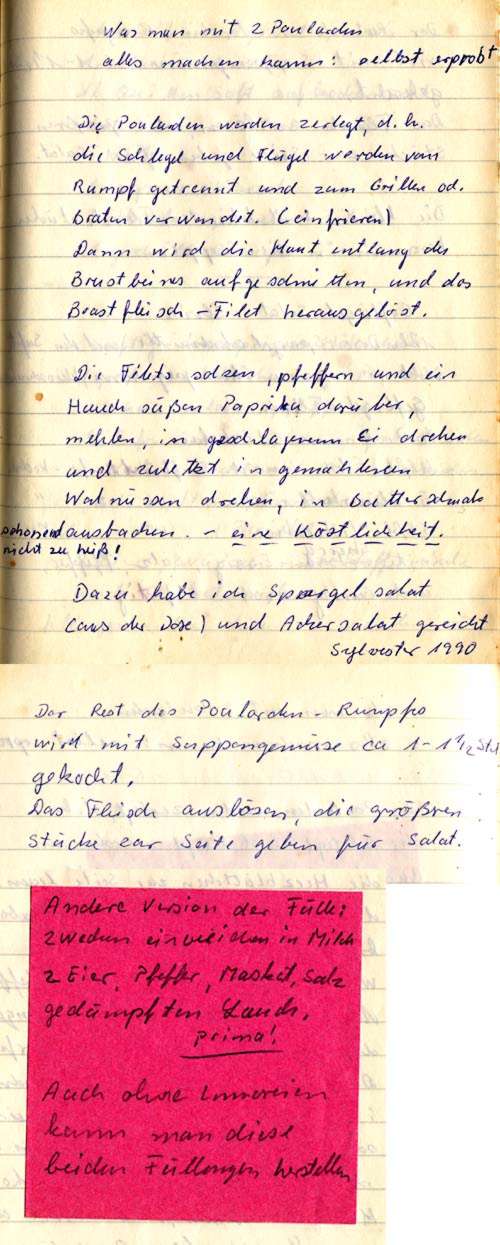 Was man mit 2 Poularden
alles machen kann: selbst erprobt
Die Poularden werden zerlegt, d.h.
die Schlegel und Flügel werden vom
Rumpf getrennt und zum Grillen od.
Braten verwendet. (einfrieren)
Dann wird die Haut entlang des
Brustbeines aufgeschnitten, und das
Brustfleisch - Filet herausgelöst.
Die Filets salzen, pfeffern und ein
Hauch süßen Paprika darüber,
mehlen, in geschlagenem Ei drehen
und zuletzt in gemahlenen
Walnüssen drehen, in Butterschmalz
schonend ausbacken. - eine Köstlichkeit.
nicht zu heiß!
Dazu habe ich Spargelsalat
(aus der Dose) und Ackersalat gereicht
Sylvester 1990
Der Rest des Poularden-Rumpfs
wird mit Suppengemüse ca 1-1 1/2 Std
gekocht.
Das Fleisch auslösen, die größren
Stücke zur Seite geben für Salat.
Andere Version der Fülle:
2 Wecken einweichen in Milch
2 Eier, Pfeffer, Muskat, Salz
gedämpften Lauch,
prima!
Auch ohne Innereien
kann man diese
beiden Füllungen herstellen